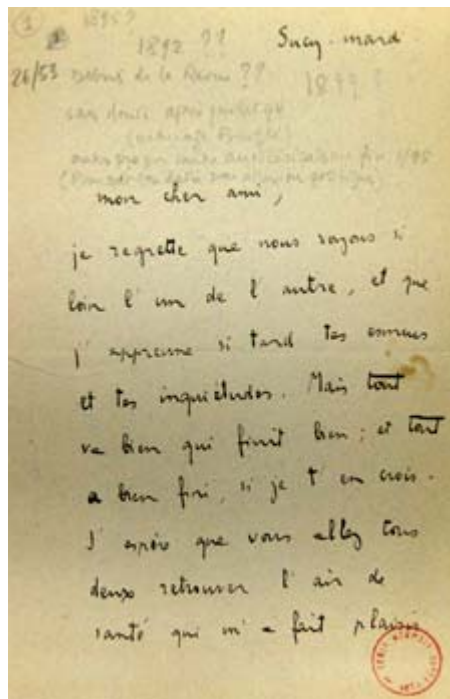 1
1895?
1892 ??
Sucy - mard
26/53 Début de la Revue ?? 1899?
sans doute après
mon cher ami,
je regrette que nous soyons si
loin l'un de l'autre, et que
j'apprenne si tard tes ennuis
et tes inquiétudes. Mais tout
va bien qui finit bien ; et tout
a bien fini, si je t'en crois.
J'espère que vous allez tous
deux retrouver l'air de
santé qui m'a fait plaisir